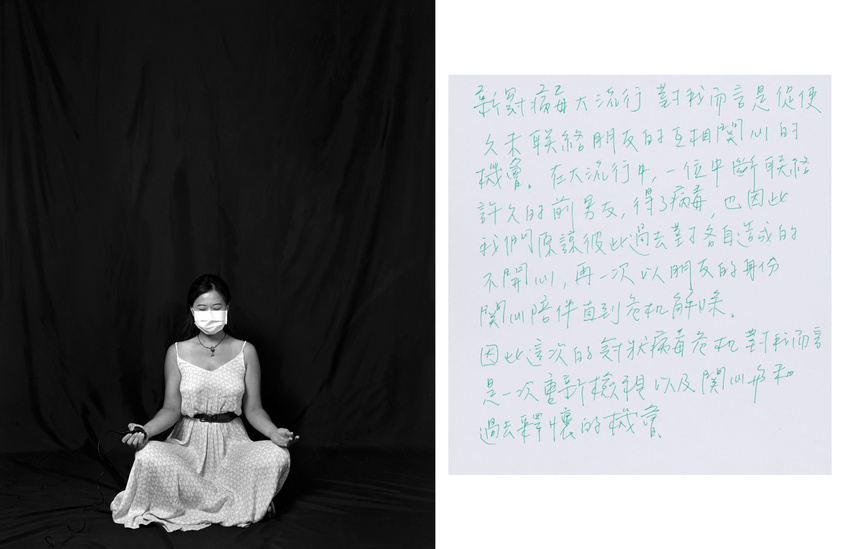 新病毒大流行 對我而言是促使
久未聯絡朋友的互相關心的
機會。在大流行中,一位中斷聯絡
許久的前男友,得了病毒,也因此
我們原諒彼此過去對各自造成的
不開心,再一次以朋友的身份
關心陪伴直到危机解除。
因此這次的狀病毒危机對我而言
是一次重新檢視以及關心和
過去釋懷的機會。